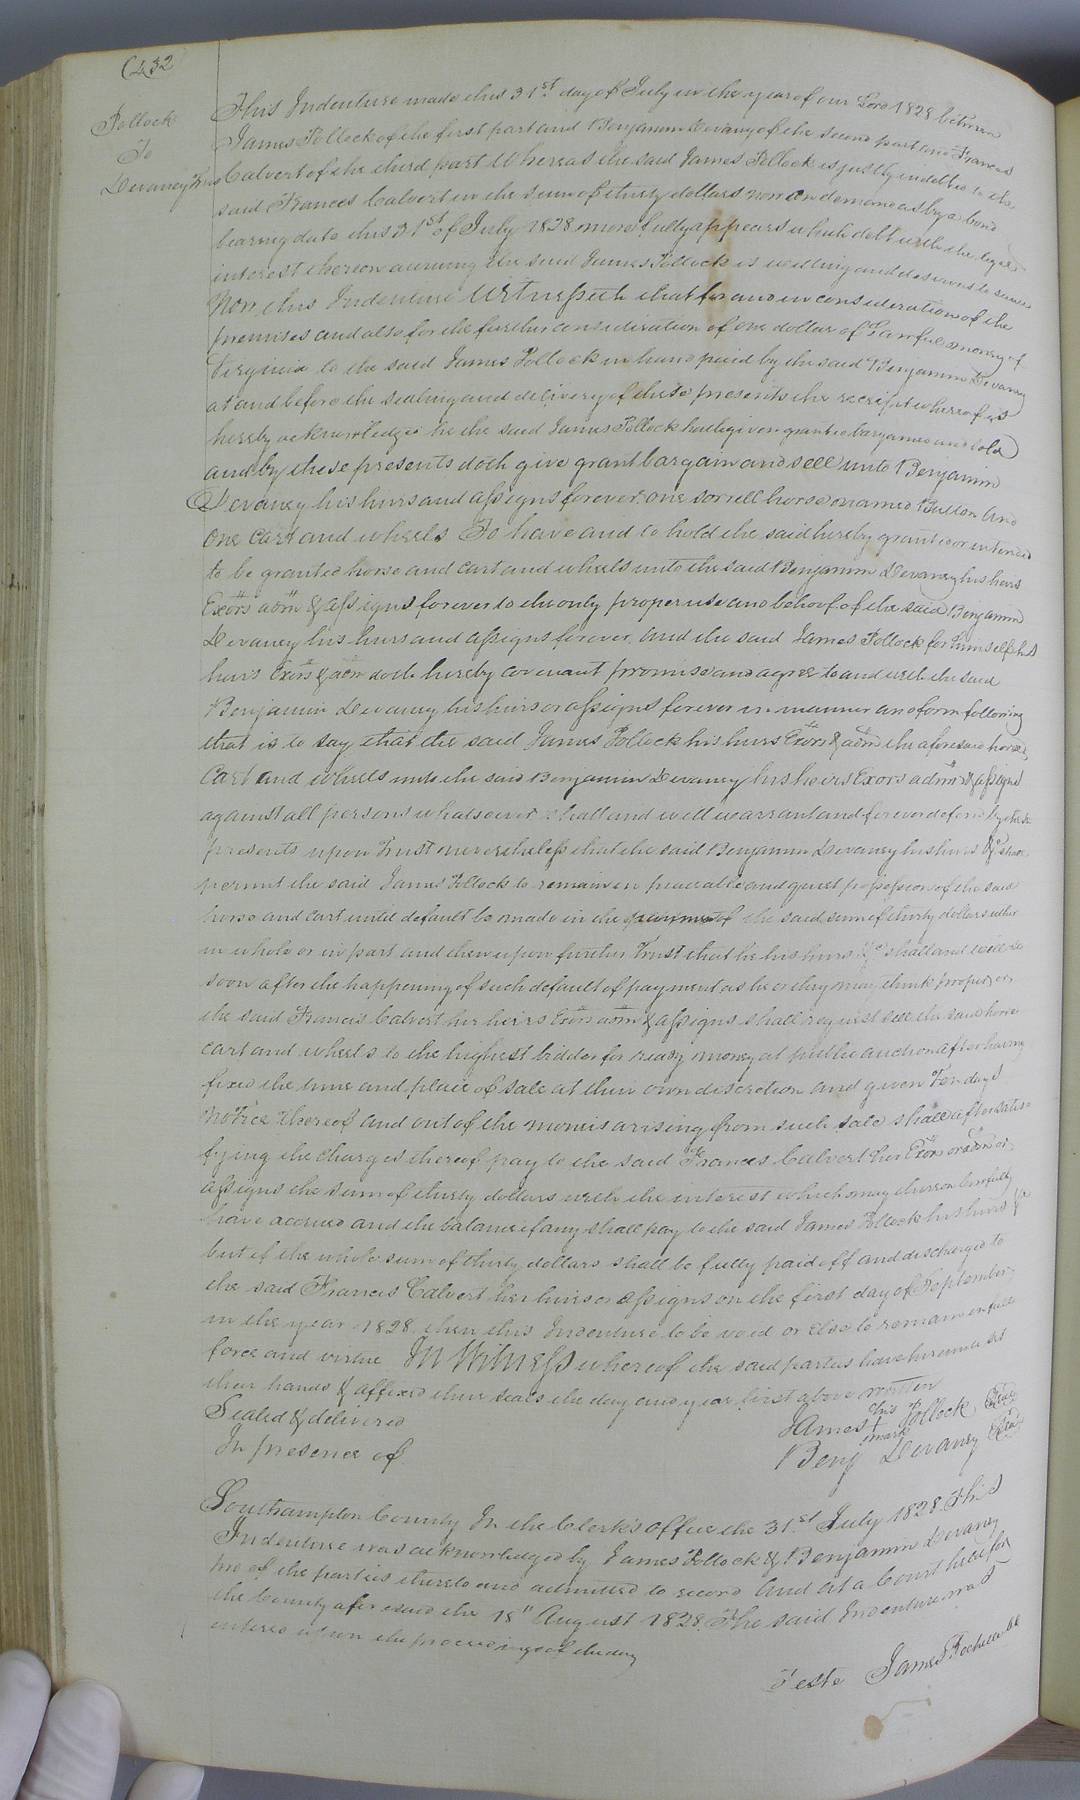 (432
Pollock
To
Devaney Trus
This Indenture made this 31st day of July in the year of our Lord 1828 between
James Pollock of the first part and Benjamin Devany of the second part and Frances
Calvert of the third part Whereas the said James Pollock is justly indebted to the
said Frances Calvert in the sum of thirty dollars now on demand as by a bond
bearing date this 31st of July 1828 more fully appears which debt with the legal
interest thereon accruing the said James Pollock is willing and desirous to secure
Now this Indenture Witnesseth that for and in consideration of the
premises and also for the further consideration of one dollar of Lawful money of
Virginia to the said James Pollock in hand paid by the said Benjamin Devaney
at and before the sealing and delivery of these presents the receipt whereof is
hereby acknowledged he the said James Pollock hath given granted bargained and sold
and by these presents doth give grant bargain and sell unto Benjamin
Devaney his heirs and assigns forever one sorrell horse named Button and
One Cart and wheels To have and to hold the said hereby granted or intended
to be granted horse and cart and wheels unto the said Benjamin Devaney his heirs
Exors adm & assigns forever to the only proper use and behoof of the said Benjamin
Devaney his heirs and assigns forever, and the said James Pollock for himself his
heirs Exors & adm doth hereby covenant promise and agree to and with the said
Benjamin Devaney his heirs or assigns forever in manner and form following
that is to say that the said James Pollock his heirs Exors & adm the aforesaid horse
Cart and wheels unto the said Benjamin Devaney his heirs Exors adm & assigns
against all persons whatsoever shall and will warrant and forever defend by these
presents upon Trust nevertheless that the said Benjamin Devaney his heirs &c shall
permit the said James Pollock to remain in peaceable and quiet possession of the said
horse and cart until default be made in the payment of the said sum of thirty dollars either
in whole or in part and then upon further Trust that he his heirs &c shall and will so
soon after the happening of such default of payment as he or they may think proper or
the said Francis Calvert her heirs Exors adm & assigns shall request sell the said horse
cart and wheels to the highest bidder for ready money at public auction after having
fixed the time and place of sale at their own discretion and given Ten days
Notice thereof and out of the monies arising from such sale shall after satis-
fying the charges thereof pay to the said Frances Calvert her Exors or adm or
assigns the sum of thirty dollars with the interest which may thereon lawfully
have accrued and the balance if any shall pay to the said James Pollock his heirs &c
but if the whole sum of thirty dollars shall be fully paid off and discharged to
the said Francis Calvert her heirs or assigns on the first day of September
in the year 1828 then this Indenture to be void or else to remain in full
force and virtue In Witness whereof the said parties have hereunto set
their hands & affixed their seals the day and year first above written
Sealed & delivered
In presence of
his
James + Pollock Seal
mark
Benj Devaney Seal
Southampton County In the Clerk's office the 31st July 1828 This
Indenture was acknowledged by James Pollock & Benjamin Devaney
two of the parties thereto and admitted to record And at a Court held for
the County aforesaid the 18th August 1828 The said Indenture was
entered upon the proceedings of the day
Teste James Rochelle